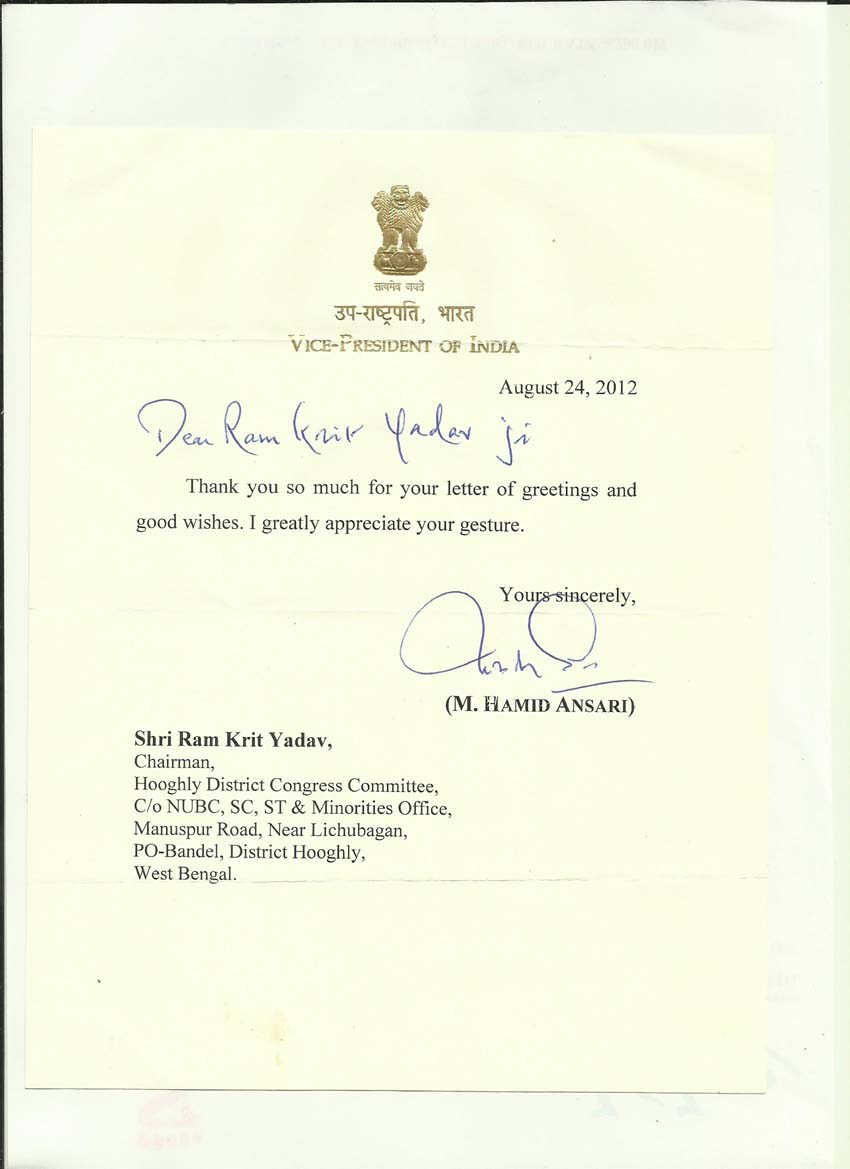 सत्यमेव जयते
उप-राष्ट्रपति, भारत
VICE-PRESIDENT OF INDIA
August 24, 2012
Dear Ram Krit Yadav ji
Thank you so much for your letter of greetings and
good wishes. I greatly appreciate your gesture.
Yours sincerely,
(M. HAMID ANSARI)
Shri Ram Krit Yadav,
Chairman,
Hooghly District Congress Committee,
C/o NUBC, SC, ST & Minorities Office,
Manuspur Road, Near Lichubagan,
PO-Bandel, District Hooghly,
West Bengal.